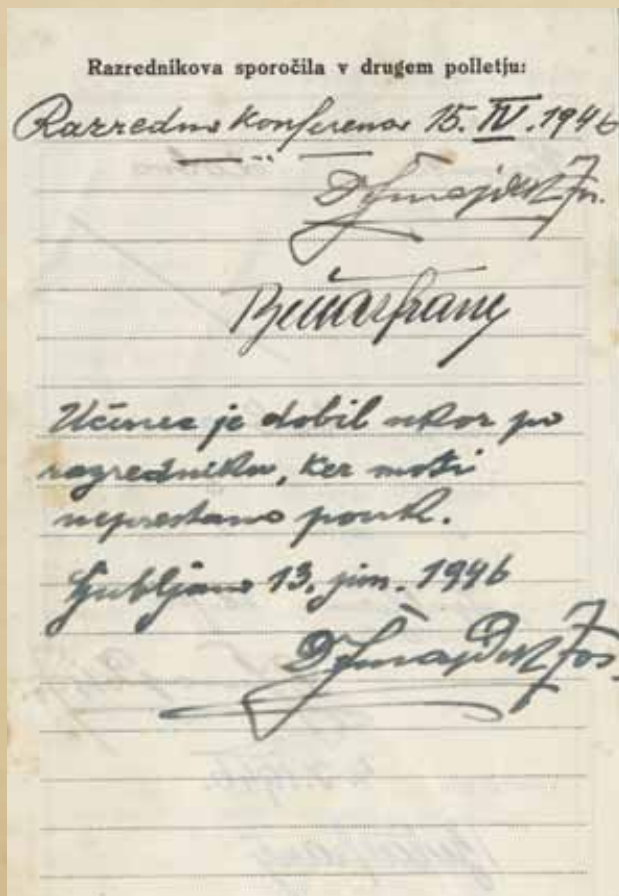 Razrednikova sporočila v drugem polletju:
Razredna konferenca 15. IV. 1946
Dr Šmajdek Jos.
Učenec je dobil ukor po
razredniku, ker moti
neprestano pouk.
Ljubljana 13. jun. 1946
Dr Šmajdek Jos.